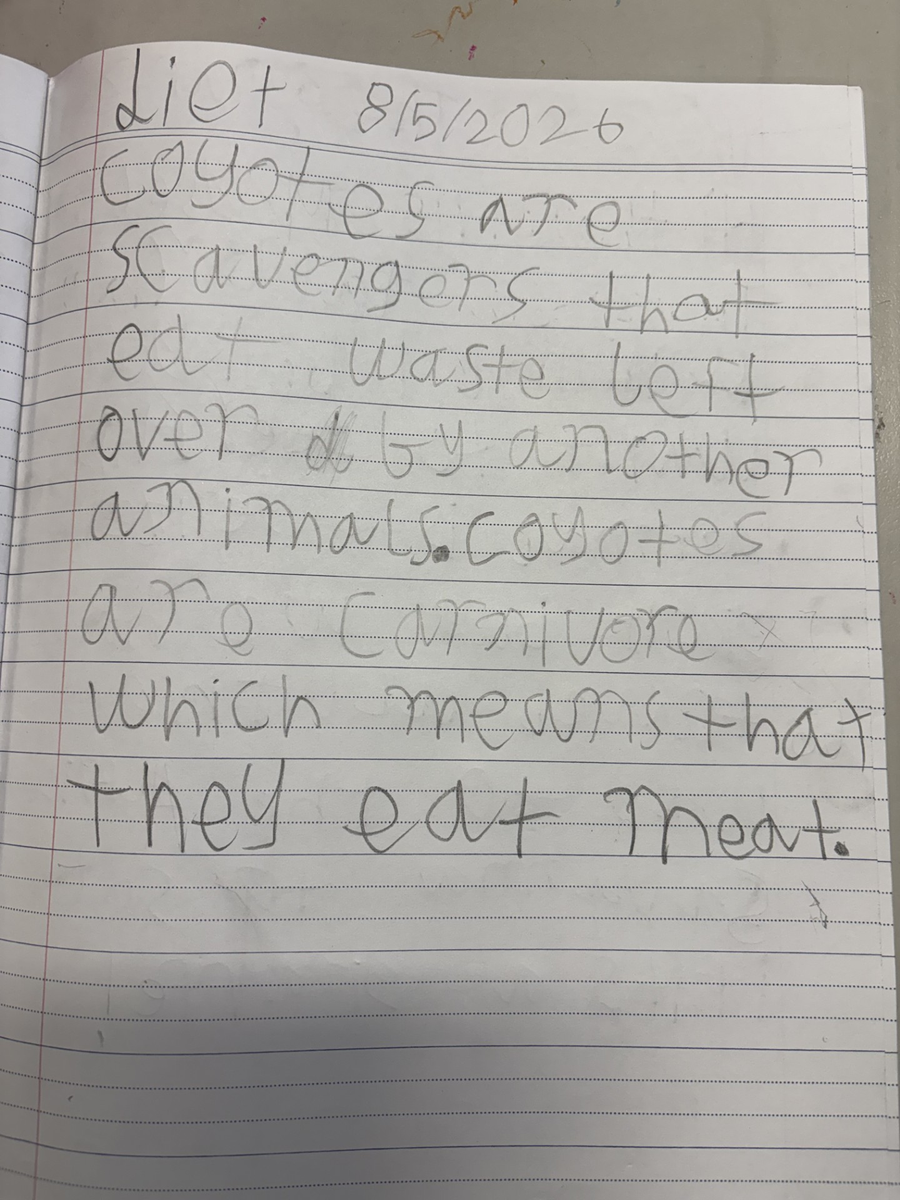 diet 8/5/2026
coyotes are
scavengers that
eat waste left
over by another
animals. coyotes
are carnivore
which means that
they eat meat.